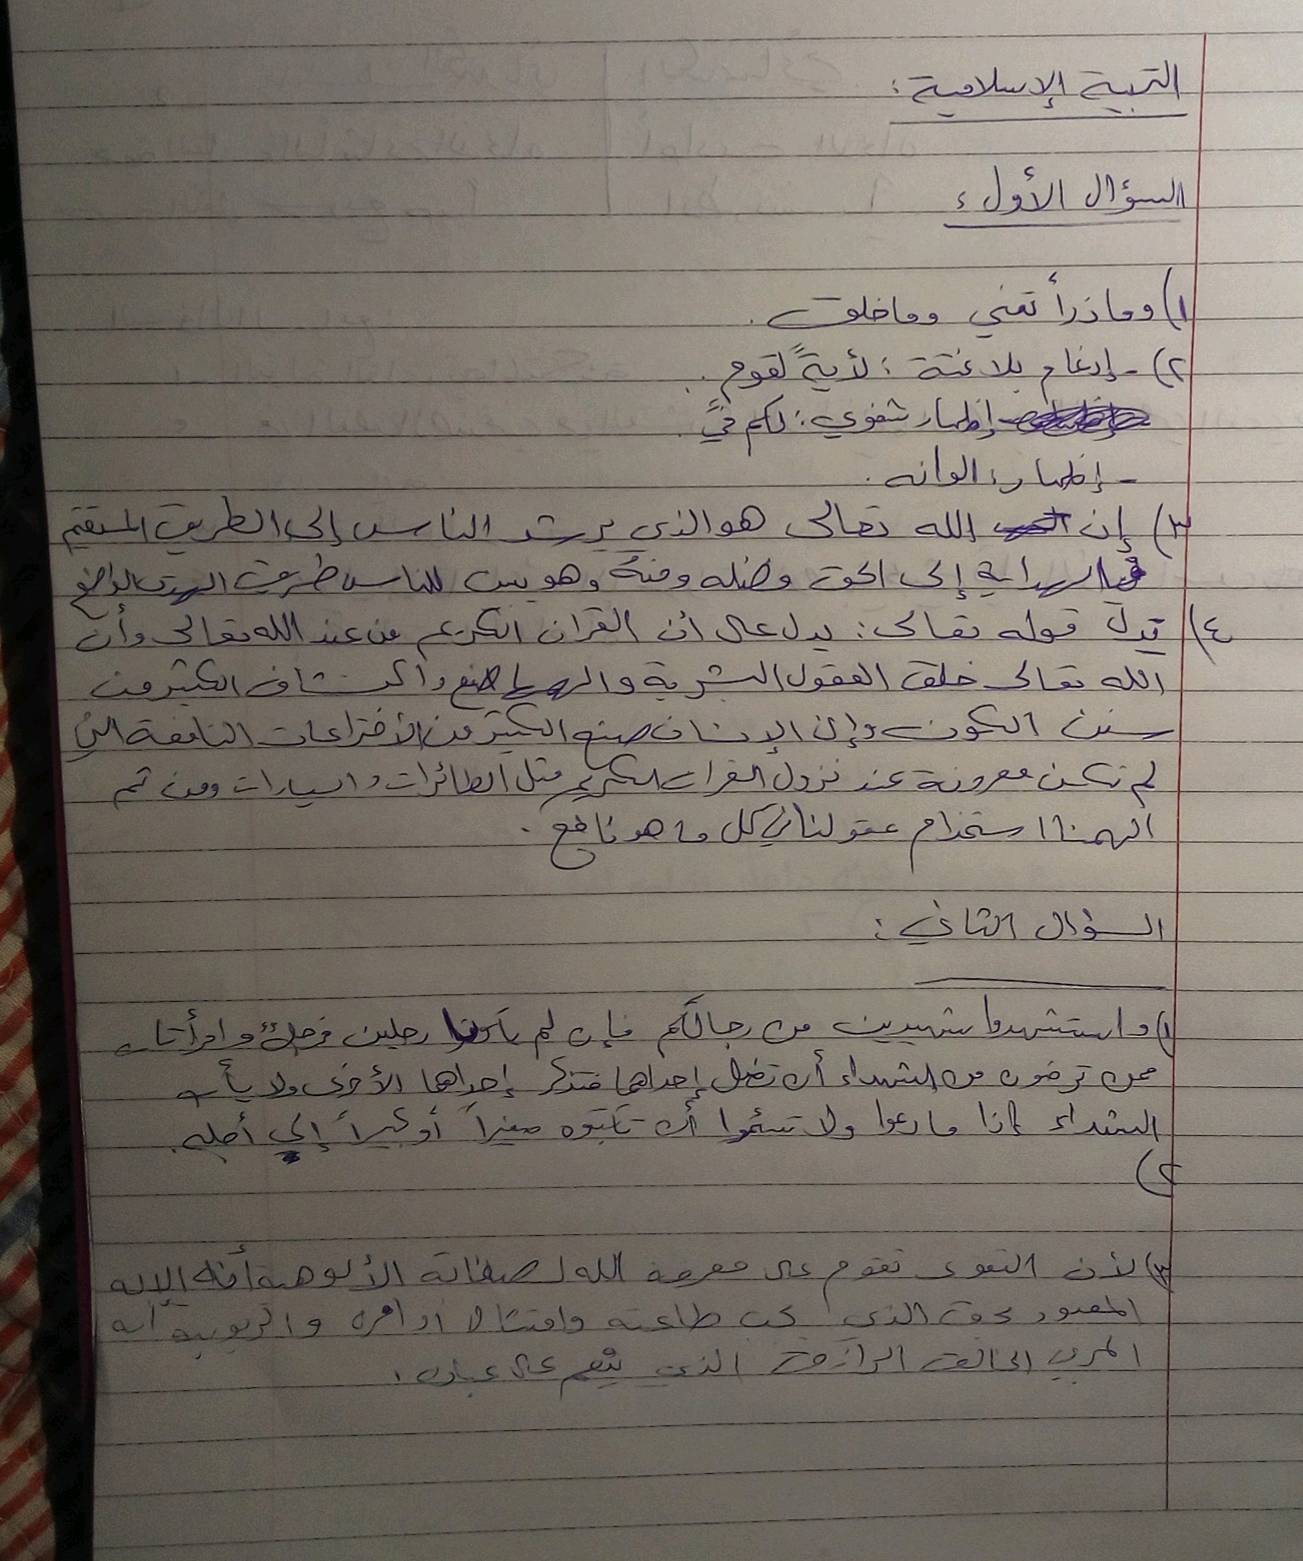 التربية الإسلامية:
السؤال الأول:
١) وما ذرأ تعني وما خلق.
٢) - إدغام بلا غنة: لأيةً لقوم.
- إظهار شفوي: لكم في
- إظهار: الوانه.
٣) إن الله تعالى هو الذي يرشد الناس إلى الطريق المستقيم
الهداية إلى الحق وفضله ومنه وهو يبين للناس طريق الهدى الواضح
٤) تدل قوله تعالى: يدل على أن القرآن الكريم من عند الله تعالى وأن
الله تعالى خلق العقول البشرية واكتشاف الكثير من
سنن الكون وإن الإنسان صنع الكثير من الأختراعات النافعة التي
لم تكن معروفة عند نزول القرآن الكريم مثل الطائرات والسيارات ومن ثم
ألهمنا استخدام عقولنا في كل ما هو نافع.
السؤال الثاني:
١) واستشهدوا شهيدين من رجالكم فإن لم يكونا رجلين فرجلٌ وامرأتان
ممن ترضون من الشهداء أن تضل إحداهما فتذكر إحداها الأخرى ولا يأب
الشهداء إذا ما دعوا ولا تسئموا أن تكتبوه صغيراً أو كبيراً إلى أجله.
٢)
٣) لأن التقوى تقوم على معرفة الله لصفاته الألوهية أنه الإله
المعبود بحق الذي يجب طاعته وامتثال أوامره والربوبية أنه
المربي الخالق الرازق الذي ينعم على عباده.